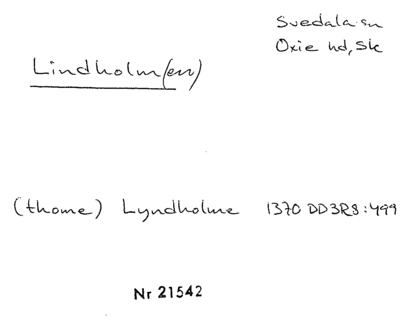 Svedala sn
Oxie hd, Sk
Lindholm(en)
(thome) Lyndholme 1370 DD3R8:499
Nr 21542